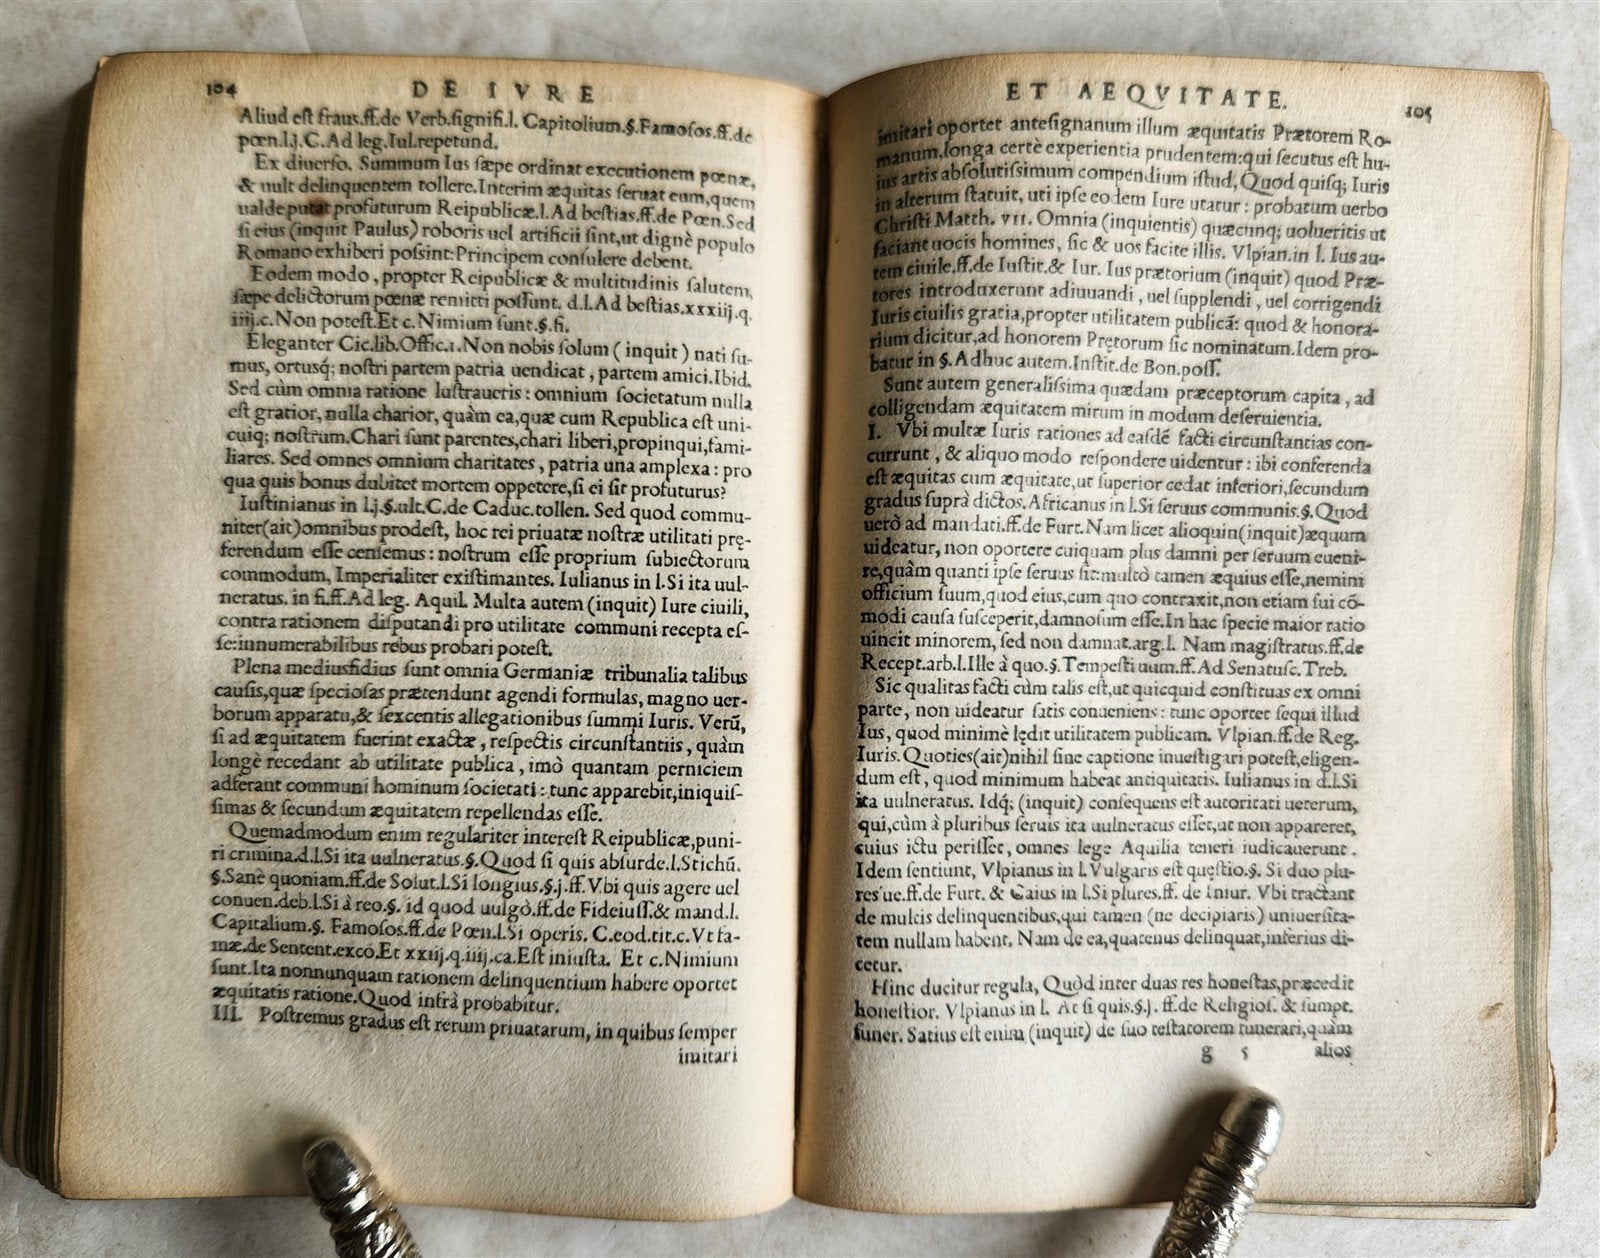 104 DE IVRE
Aliud est fraus.ff.de Verb.signifi.l. Capitolium.§.Famosos.ff.de
pœn.l.j.C.Ad leg.Iul.repetund.
Ex diuerso. Summum Ius sæpe ordinat executionem pœnæ,
& uult delinquentem tollere. Interim æquitas seruat eum, quem
ualde putat profuturum Reipublicæ.l.Ad bestias.ff.de Pœn.Sed
si eius (inquit Paulus) roboris uel artificii sint,ut dignè populo
Romano exhiberi possint: Principem consulere debent.
Eodem modo, propter Reipublicæ & multitudinis salutem,
sæpe delictorum pœnæ remitti possunt. d.l.Ad bestias.xxxiij.q.
iiij.c.Non potest.Et c.Nimium sunt.§.fi.
Eleganter Cic.lib.Offic.1.Non nobis solum (inquit) nati su-
mus, ortusq́; nostri partem patria uendicat, partem amici.Ibid.
Sed cùm omnia ratione lustraueris: omnium societatum nulla
est gratior, nulla charior, quàm ea,quæ cum Republica est uni-
cuiq; nostrum.Chari sunt parentes,chari liberi,propinqui,fami-
liares. Sed omnes omnium charitates, patria una amplexa: pro
qua quis bonus dubitet mortem oppetere,si ei sit profuturus?
Iustinianus in l.j.§.ult.C.de Caduc.tollen. Sed quod commu-
niter(ait)omnibus prodest, hoc rei priuatæ nostræ utilitati prę-
ferendum esse censemus: nostrum esse proprium subiectorum
commodum, Imperialiter existimantes. Iulianus in l.Si ita uul-
neratus. in fi.ff.Ad leg. Aquil. Multa autem (inquit) Iure ciuili,
contra rationem disputandi pro utilitate communi recepta es-
se:innumerabilibus rebus probari potest.
Plena mediusfidius sunt omnia Germaniæ tribunalia talibus
causis,quæ speciosas prætendunt agendi formulas, magno uer-
borum apparatu,& sexcentis allegationibus summi Iuris. Verũ,
si ad æquitatem fuerint exactæ, respectis circunstantiis, quàm
longè recedant ab utilitate publica, imò quantam perniciem
adferant communi hominum societati: tunc apparebit,iniquis-
simas & secundum æquitatem repellendas esse.
Quemadmodum enim regulariter interest Reipublicæ,puni-
ri crimina.d.l.Si ita uulneratus.§.Quod si quis absurde.l.Stichũ.
§.Sanè quoniam.ff.de Solut.l.Si longius.§.j.ff.Vbi quis agere uel
conuen.deb.l.Si à reo.§. id quod uulgò.ff.de Fideiuss.& mand.l.
Capitalium.§. Famosos.ff.de Pœn.l.Si operis. C.eod.tit.c.Vt fa-
mæ.de Sentent.excõ.Et xxiij.q.iiij.ca.Est iniusta. Et c.Nimium
sunt.Ita nonnunquam rationem delinquentium habere oportet
æquitatis ratione.Quod infrà probabitur.
III. Postremus gradus est rerum priuatarum, in quibus semper
imitari
ET AEQVITATE. 105
imitari oportet antesignanum illum æquitatis Prætorem Ro-
manum,longa certè experientia prudentem:qui secutus est hu-
ius artis absolutissimum compendium istud, Quod quisq; Iuris
in alterum statuit, uti ipse eodem Iure utatur: probatum uerbo
Christi Matth. VII. Omnia (inquientis) quæcunq; uolueritis ut
faciant uocis homines, sic & uos facite illis. Vlpian.in l. Ius au-
tem ciuile.ff.de Iustit.& Iur. Ius prætorium (inquit) quod Præ-
tores introduxerunt adiuuandi, uel supplendi, uel corrigendi
Iuris ciuilis gratia,propter utilitatem publicã: quod & honora-
rium dicitur,ad honorem Prętorum sic nominatum.Idem pro-
batur in §.Adhuc autem.Instit.de Bon.poss.
Sunt autem generalissima quædam præceptorum capita, ad
colligendam æquitatem mirum in modum deseruientia.
I. Vbi multæ Iuris rationes ad easdẽ facti circunstantias con-
currunt, & aliquo modo respondere uidentur: ibi conferenda
est æquitas cum æquitate,ut superior cedat inferiori,secundum
gradus suprà dictos. Africanus in l.Si seruus communis.§. Quod
uerò ad mandati.ff.de Furt. Nam licet alioquin(inquit)æquum
uideatur, non oportere cuiquam plus damni per seruum eueni-
re,quàm quanti ipse seruus sit:multò tamen æquius esse,nemini
officium suum,quod eius,cum quo contraxit,non etiam sui cõ-
modi causa susceperit,damnosum esse.In hac specie maior ratio
uincit minorem, sed non damnat.arg.l. Nam magistratus.ff.de
Recept.arb.l.Ille à quo.§.Tempestiuum.ff. Ad Senatusc. Treb.
Sic qualitas facti cùm talis est,ut quicquid constituas ex omni
parte, non uideatur satis conueniens: tunc oportet sequi illud
Ius, quod minimè lędit utilitatem publicam. Vlpian.ff.de Reg.
Iuris. Quoties(ait)nihil sine captione inuestigari potest,eligen-
dum est, quod minimum habeat antiquitatis. Iulianus in d.l.Si
ita uulneratus. Idq́; (inquit) consequens est autoritati ueterum,
qui,cùm à pluribus seruis ita uulneratus esset,ut non appareret,
cuius ictu perisset, omnes lege Aquilia teneri iudicauerunt.
Idem sentiunt, Vlpianus in l.Vulgaris est quęstio.§. Si duo plu-
res'ue.ff.de Furt. & Caius in l.Si plures.ff. de Iniur. Vbi tractant
de multis delinquentibus,qui tamen (ne decipiaris) uniuersita-
tem nullam habent. Nam de ea,quatenus delinquat,inferius di-
cetur.
Hinc ducitur regula, Quòd inter duas res honestas,præcedit
honestior. Vlpianus in l. At si quis.§.j. ff.de Religios. & sumpt.
funer. Satius est enim (inquit) de suo testatorem funerari,quàm
g 5 alios